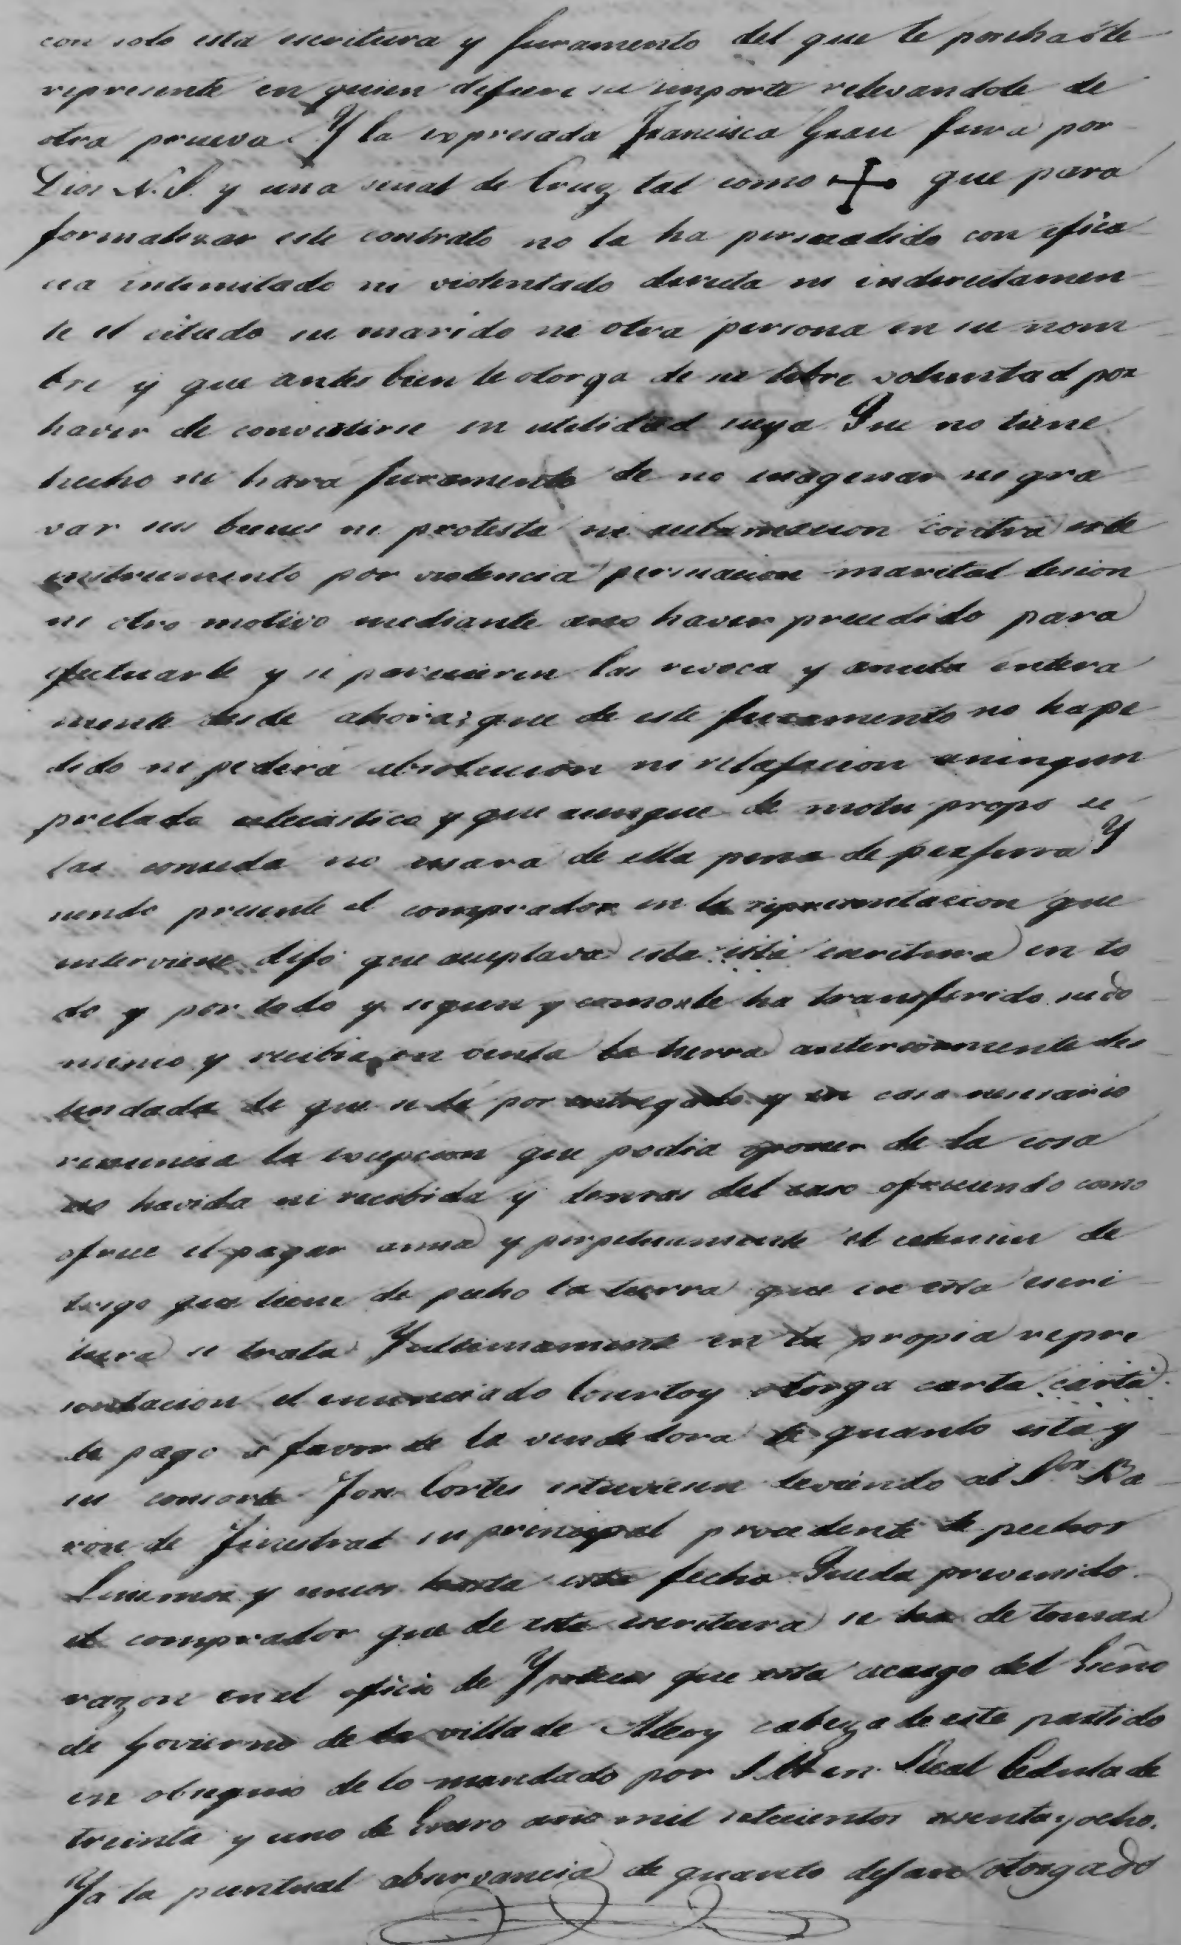 con solo esta escritura y juramento del que le posehaóle
represente en quien defiere su importe relevandole de
otra prueva. Y la expresada Francisca Grau jura por
Dios N. S. y una señal de Cruz tal como + que para
formalizar este contrato no la ha persuadido con efica
cia intimitado ni violentado directa ni indirectamen
te el citado su marido ni otra persona en su nom
bre y que antes bien le otorga de su libre voluntad por
haver de convertirse en utilidad suya Que no tiene
hecho ni hará juramento de no enagenar ni gra
var sus bienes ni protesta ni reclamacion contra este
instrumento por violencia persuacion marital lesion
ni otro motivo mediante ano haver precedido para
efectuarle y si parecieren las revoca y anula entera
mente desde ahora; que de este juramento no hape
dido ni pedirá absolucion ni relajacion aningun
prelado eclesiastico y que aunque de motu propo se
las conceda no usará de ella pena de perjurra Y
siendo presente el comprador en la representacion que
interviene dijo que aceptava esta esta escritura en to
do y por todo y segun y comosele ha transferido sudo
minio y recibia en venta la tierra anteriormente des
lindada de que se dá por entregado y en caso necesario
renuncia la excepcion que podia oponer de la cosa
no havida ni recibida y demas del caso ofreciendo como
ofrece el pagar annua y perpetuamente el celemin de
trigo que tiene de pecho la tierra que en esta escri
tura se trata Yultimamente en la propia repre
sentacion el enunciado Courtoy otorga carta carta
de pago a favor de la vendedora de quanto esta y
su consorte Jose Cortes estuviesen deviendo al Sor Ba
ron de Finestrat su principal procedente de pechos
Luismos y censos hasta esta fecha Queda prevenido
el comprador que de esta escritura se ha de tomar
razon en el oficio de Ypotecas que está acargo del Esño
de Govierno de la villa de Alcoy cabeza de este partido
en obsequio de lo mandado por S. M. en Real Cedula de
treinta y uno de Enero año mil setecientos sesenta y ocho.
Ya la puntual observancia de quanto dejan otorgado